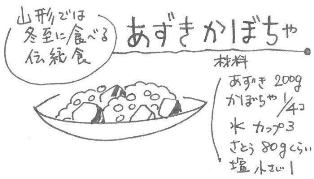 山形では
冬至に食べる
伝統食
あずきかぼちゃ
材料
あずき 200g
かぼちゃ 1/4コ
水 カップ3
さとう 80gくらい
塩 小さじ1